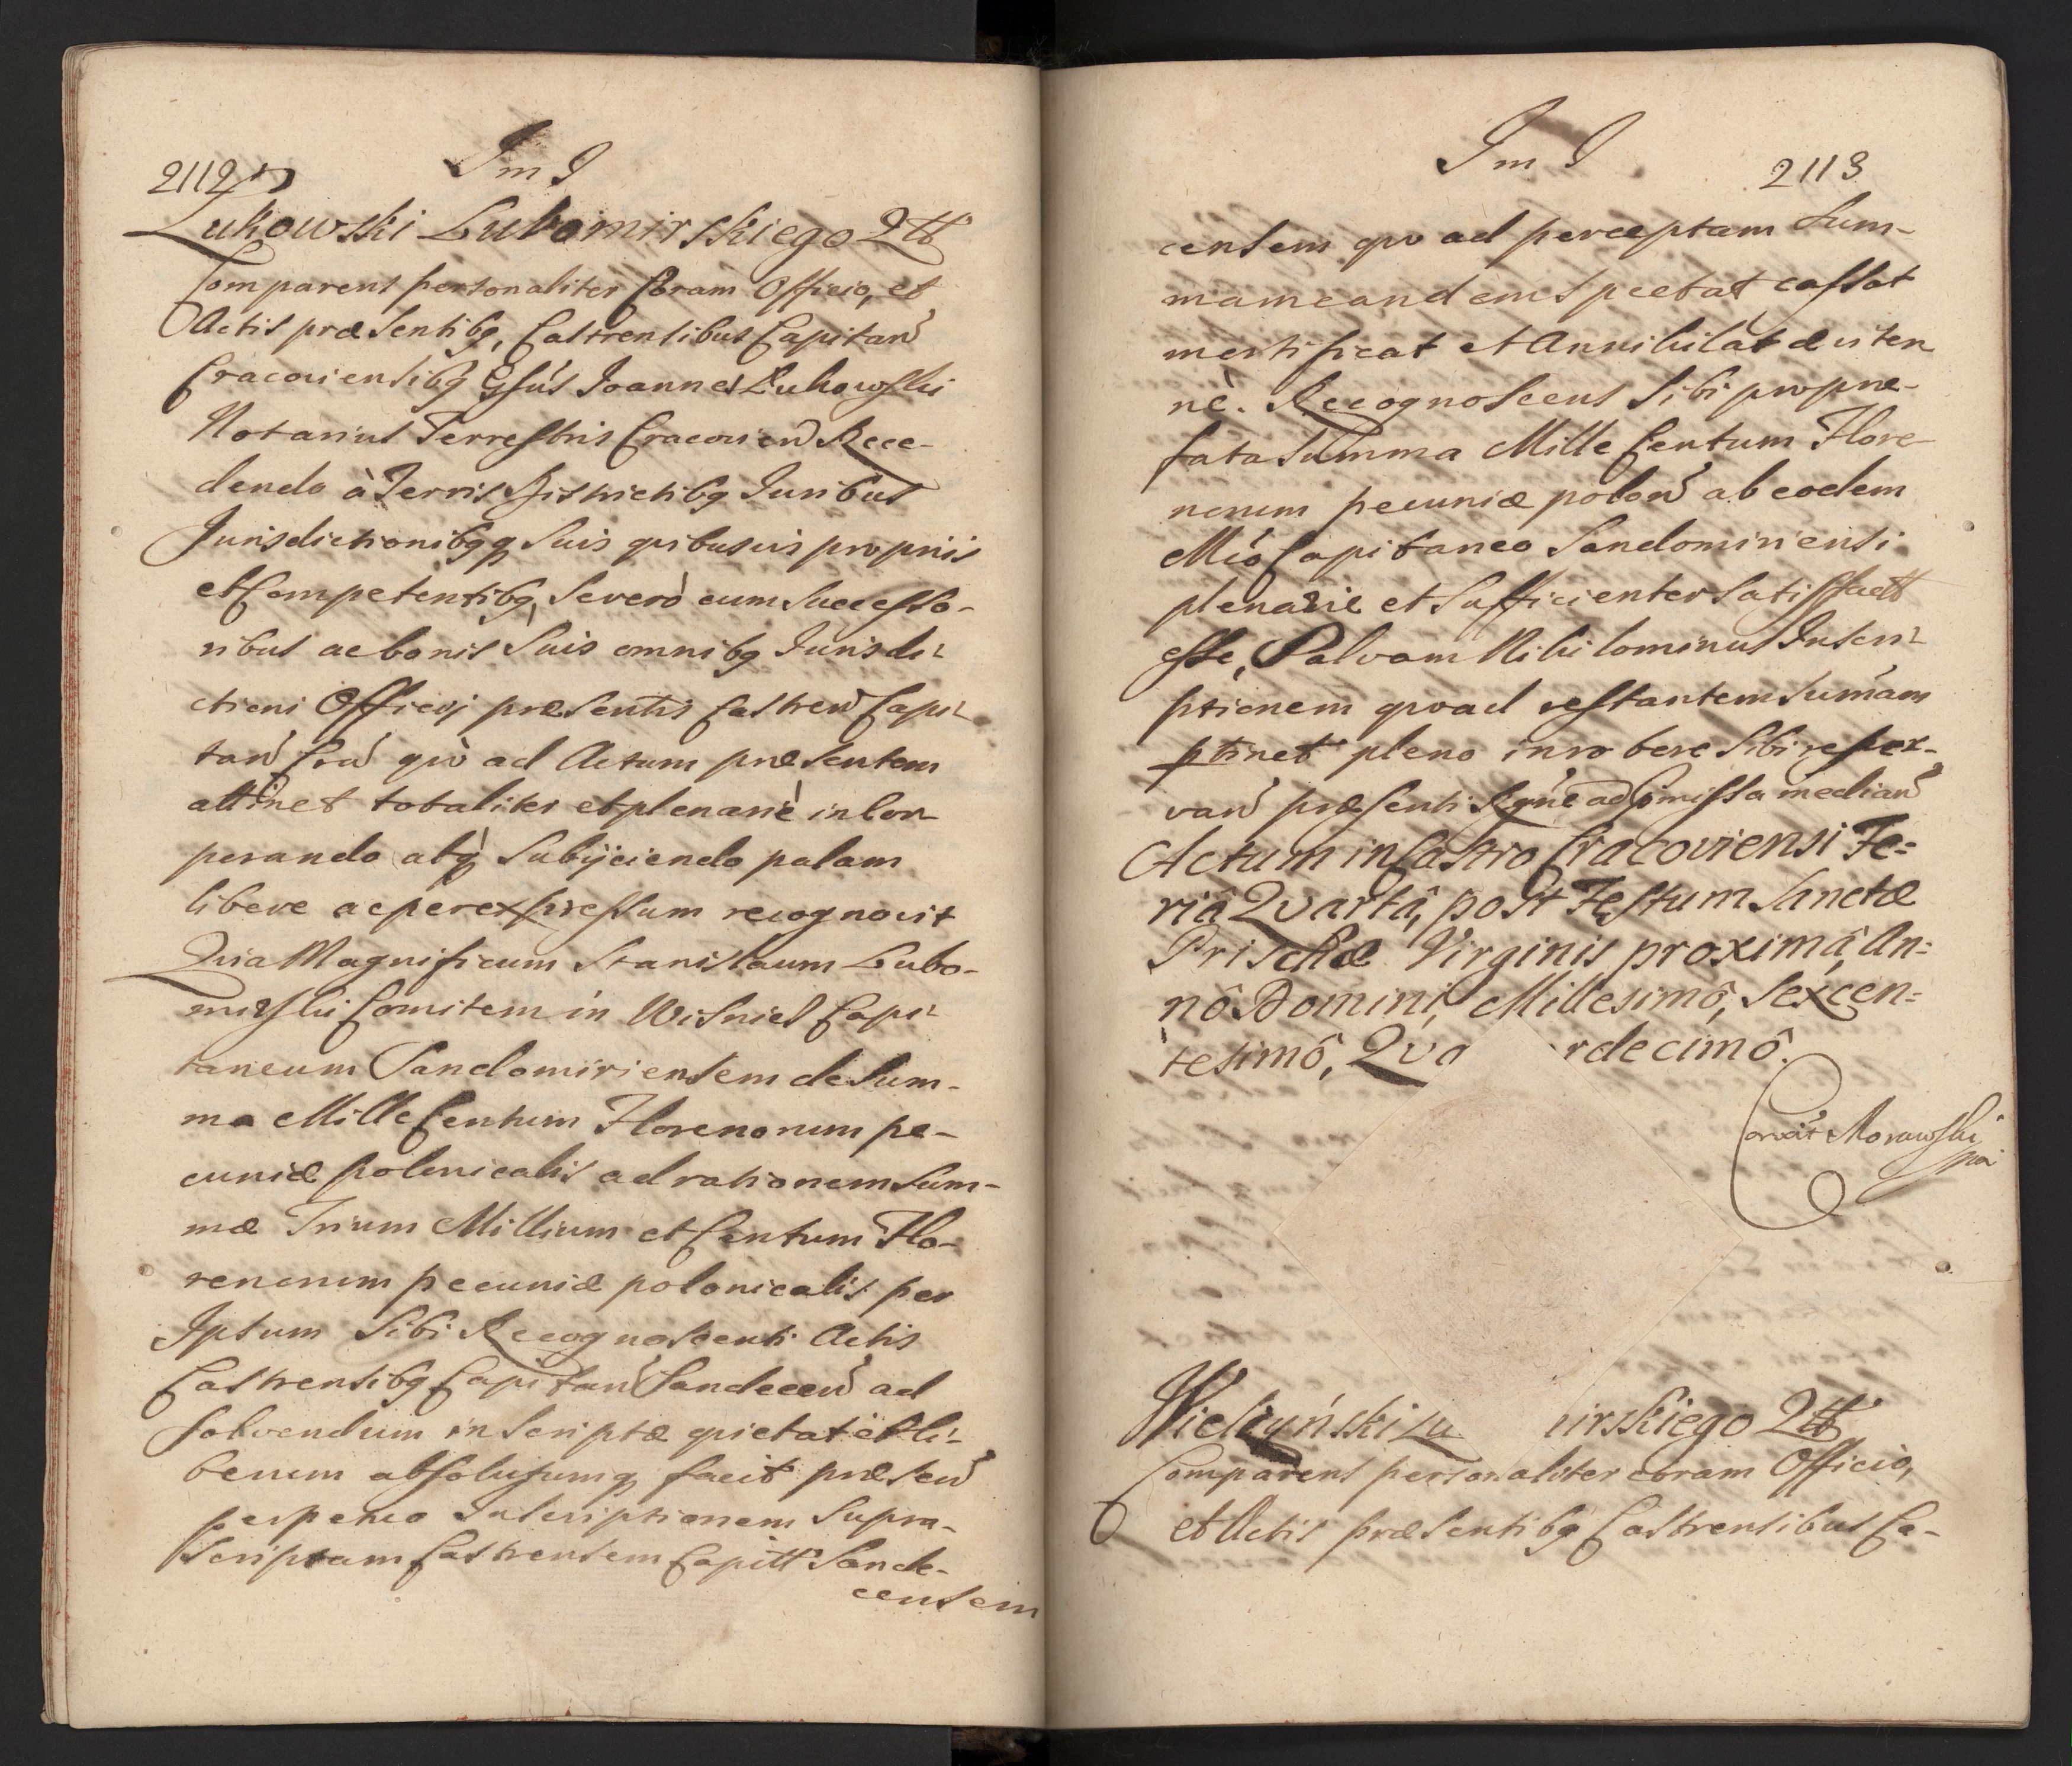 2112
Im I
Lukowski Lubomirskiego Qtt
Comparens personaliter Coram Officio, et
Actis præsentibq, Castrensibus Capitan
Cracoviensibq Gsús Joannes Lukowski
Notarius Terrestris Cracovien Rece-
dendo à Terris Districtibq Juribus
Jurisdictionibqq Suis qvibusvis propriis
et Competentibq, Severò cum Successo-
ribus ac bonis Suis omnibq Jurisdi-
ctioni Officij præsentis Castren Capi-
tan Cra qvò ad Actum præsentem
attinet totaliter et plenariè incor-
porando atq̀ Subijciendo palam
libere ac per expressum recognovit
Qvia Magnificum Stanislaum Lubo-
mirski Comitem in Wisnicz Capi-
taneum Sandomiriensem de Sum-
ma Mille Centum Florenorum pe-
cuniæ polonicalis ad rationem Sum-
mæ Trium Millium et Centum Flo-
renorum pecuniæ polonicalis per
Ipsum Sibi Recognoscenti Actis
Castrensibq Capitan Sandecen ad
solvendum inscriptæ qvietat et li-
berum absolutumq facit præsen
perpetuo Inscriptionem Supra-
scriptam Castrensem Capitt Sande-
censem
Im I
2113
censem qvo ad perceptam Sum-
mam eandem spectat cassat
mortificat et Annihilat æviter-
nè. Recognoscens Sibi pro præ-
fata Summa Mille Centum Flore-
norum pecuniæ polon ab eodem
Mcó Capitaneo Sandomiriensi
plenarie et Sufficienter Satisfactt
esse, Salvam Nihilominus Inscri-
ptionem qvoad restantem Sumam
ptinet pleno in robore Sibi reser-
van præsenti Rgne ad pmissa median
Actum in Castro Cracoviensi Fe-
riâ Qvartâ, post Festum Sanctæ
Prischæ Virginis proximâ, An-
nô Domini, Millesimô, Sexcen-
tesimô, Qva rdecimô.
Corexit Morawski
mp
Wielzyński Lu mirskiego Qtt
Comparens personaliter coram Officio,
et Actis præsentibq Castrensibus Ca-